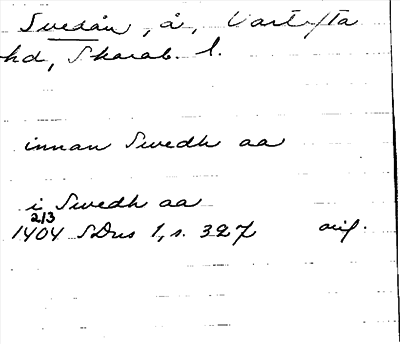 Svedån, å, Vartofta
hd, Skarab. l.
innan Swedh aa
i Swedh aa
2/3
1404 SDns 1, s. 327 orig.